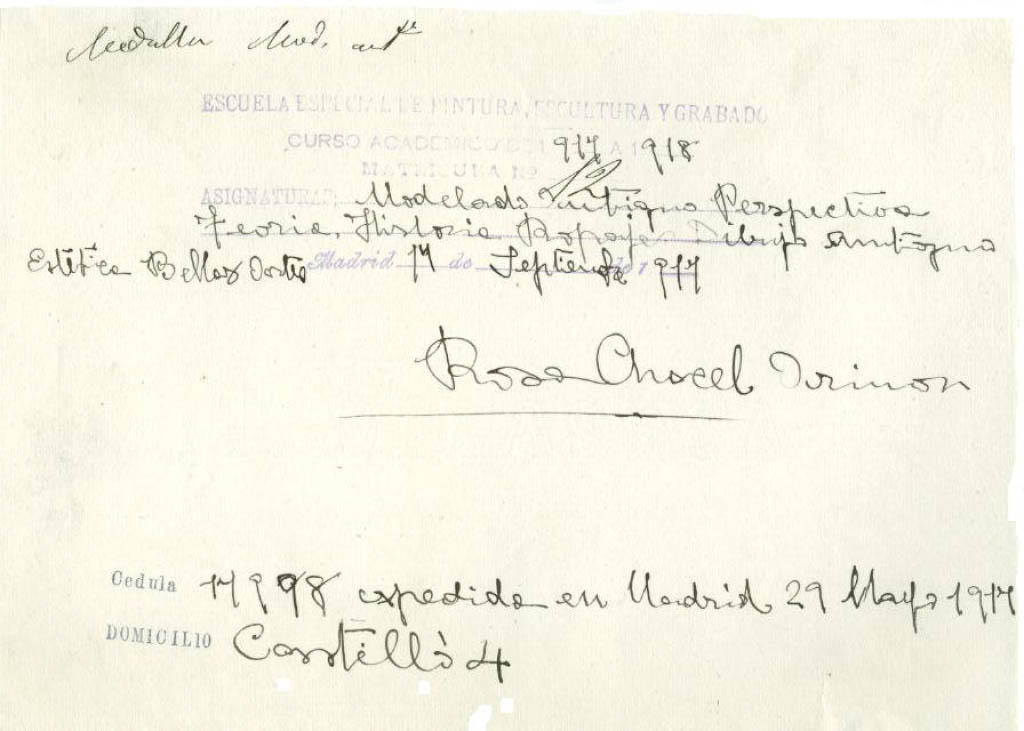 Medalla Mod. antº
ESCUELA ESPECIAL DE PINTURA, ESCULTURA Y GRABADO
CURSO ACADEMICO DE 1917 A 1918
MATRICULA Nº
ASIGNATURAS: Modelado Antiguo Perspectiva
Teoria, Historia Ropajes Dibujo Antiguo
Estética Bellas Artes Madrid 17 de Septiembre de 1917
Rosa Chacel Arimon
Cedula 17998 expedida en Madrid 29 Mayo 1917
DOMICILIO Castelló 4